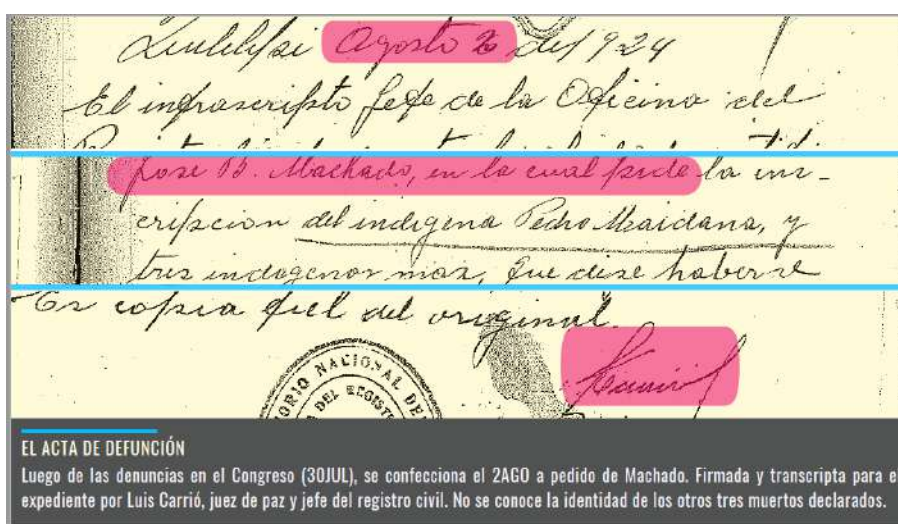 Quitilipi Agosto 2 de 1924
El infrascripto Jefe de la Oficina del
Jose B. Machado, en la cual pide la ins-
cripcion del indigena Pedro Maidana, y
tres indogenor mas, que dise haberse
Es copia fiel del original.
NACIONAL DE
DEL REGISTRO
EL ACTA DE DEFUNCIÓN
Luego de las denuncias en el Congreso (30JUL), se confecciona el 2AGO a pedido de Machado. Firmada y transcripta para el
expediente por Luis Carrió, juez de paz y jefe del registro civil. No se conoce la identidad de los otros tres muertos declarados.